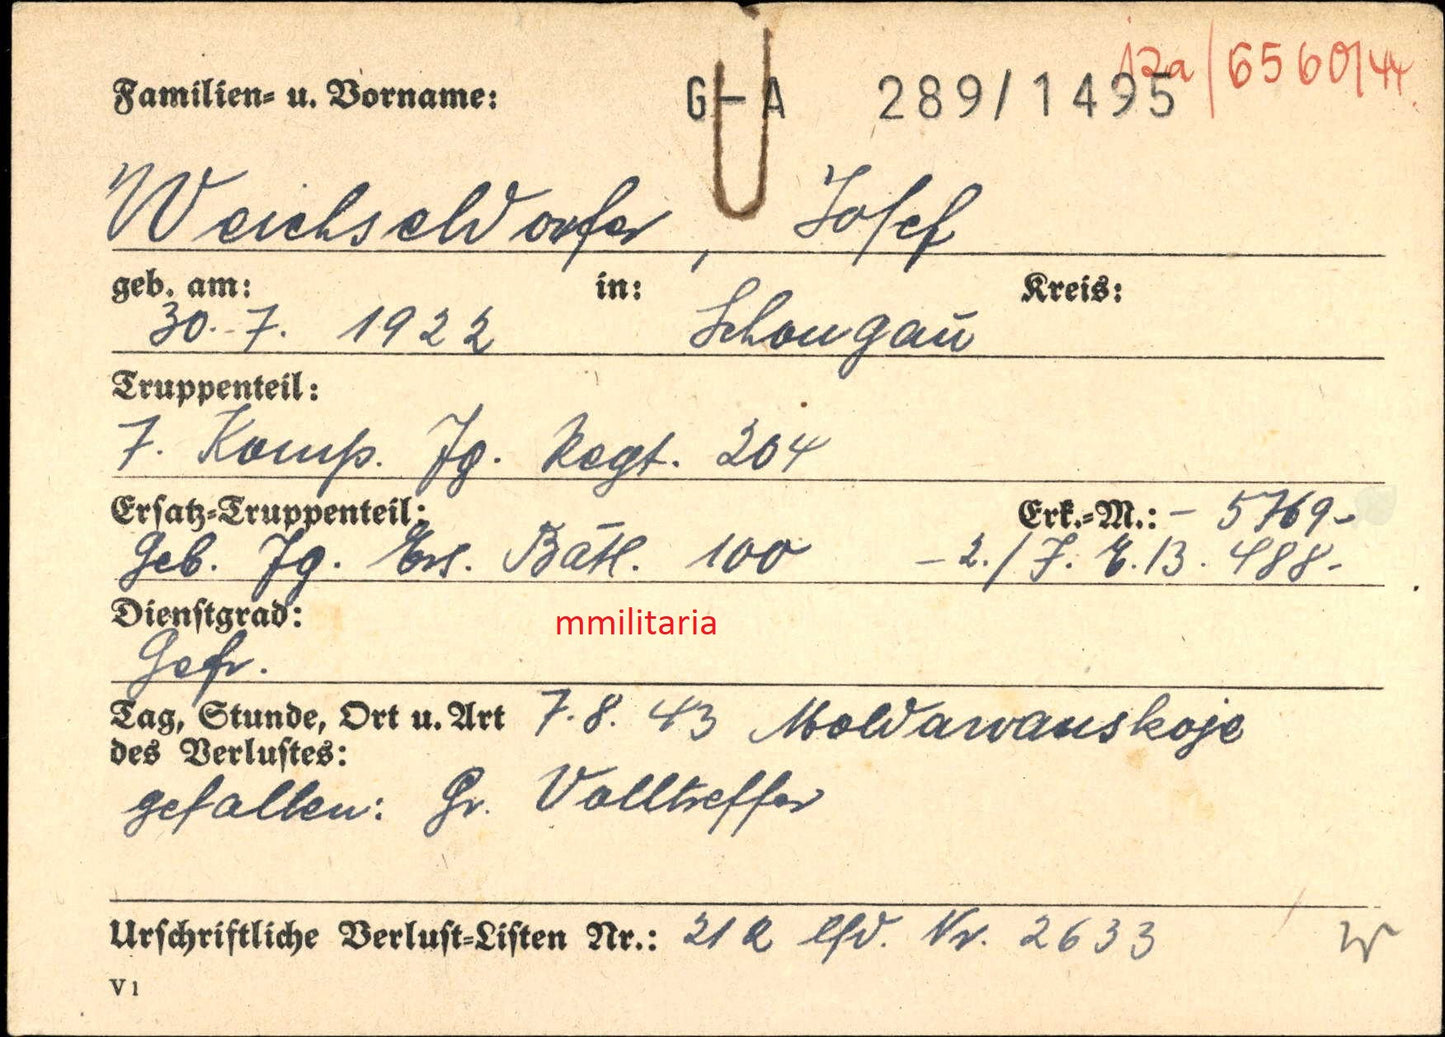 Familien- u. Vorname: G-A 289/1495 12a/6560/44
Weichseldorfer, Josef
geb. am: in: Kreis:
30. 7. 1922 Schongau
Truppenteil:
7. Komp. Jg. Regt. 204
Ersatz-Truppenteil: Erk.-M.: - 5769-
Geb. Jg. Ers. Batl. 100 - 2./J. E. B. 488-
Dienstgrad:
mmilitaria
Gefr.
Tag, Stunde, Ort u. Art 7. 8. 43 Moldawanskoje
des Verlustes:
gefallen: Gr. Volltreffer
Urschriftliche Verlust-Listen Nr.: 212 lfd. Nr. 2633
V 1